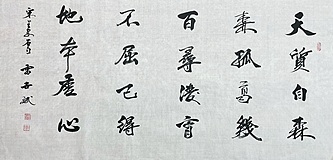 天質自森
森孤高幾
百尋淩霄
不屈己得
地本虛心